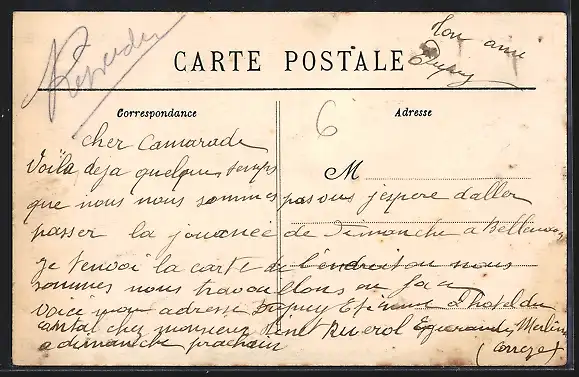 Ton ami
Dupuy
CARTE POSTALE
Correspondance
Adresse
6
M
cher Camarade
Voila deja quelques temps
que nous nous sommes pas vus j'espere d'aller
passer la journee de Dimanche a
je t'envoi la carte de l'endroit ou nous
sommes nous travaillons en face
voici mon adresse Dupuy Etienne a l'hotel du
cantal chez monsieur René Merlines
a dimanche prochain (Correze)